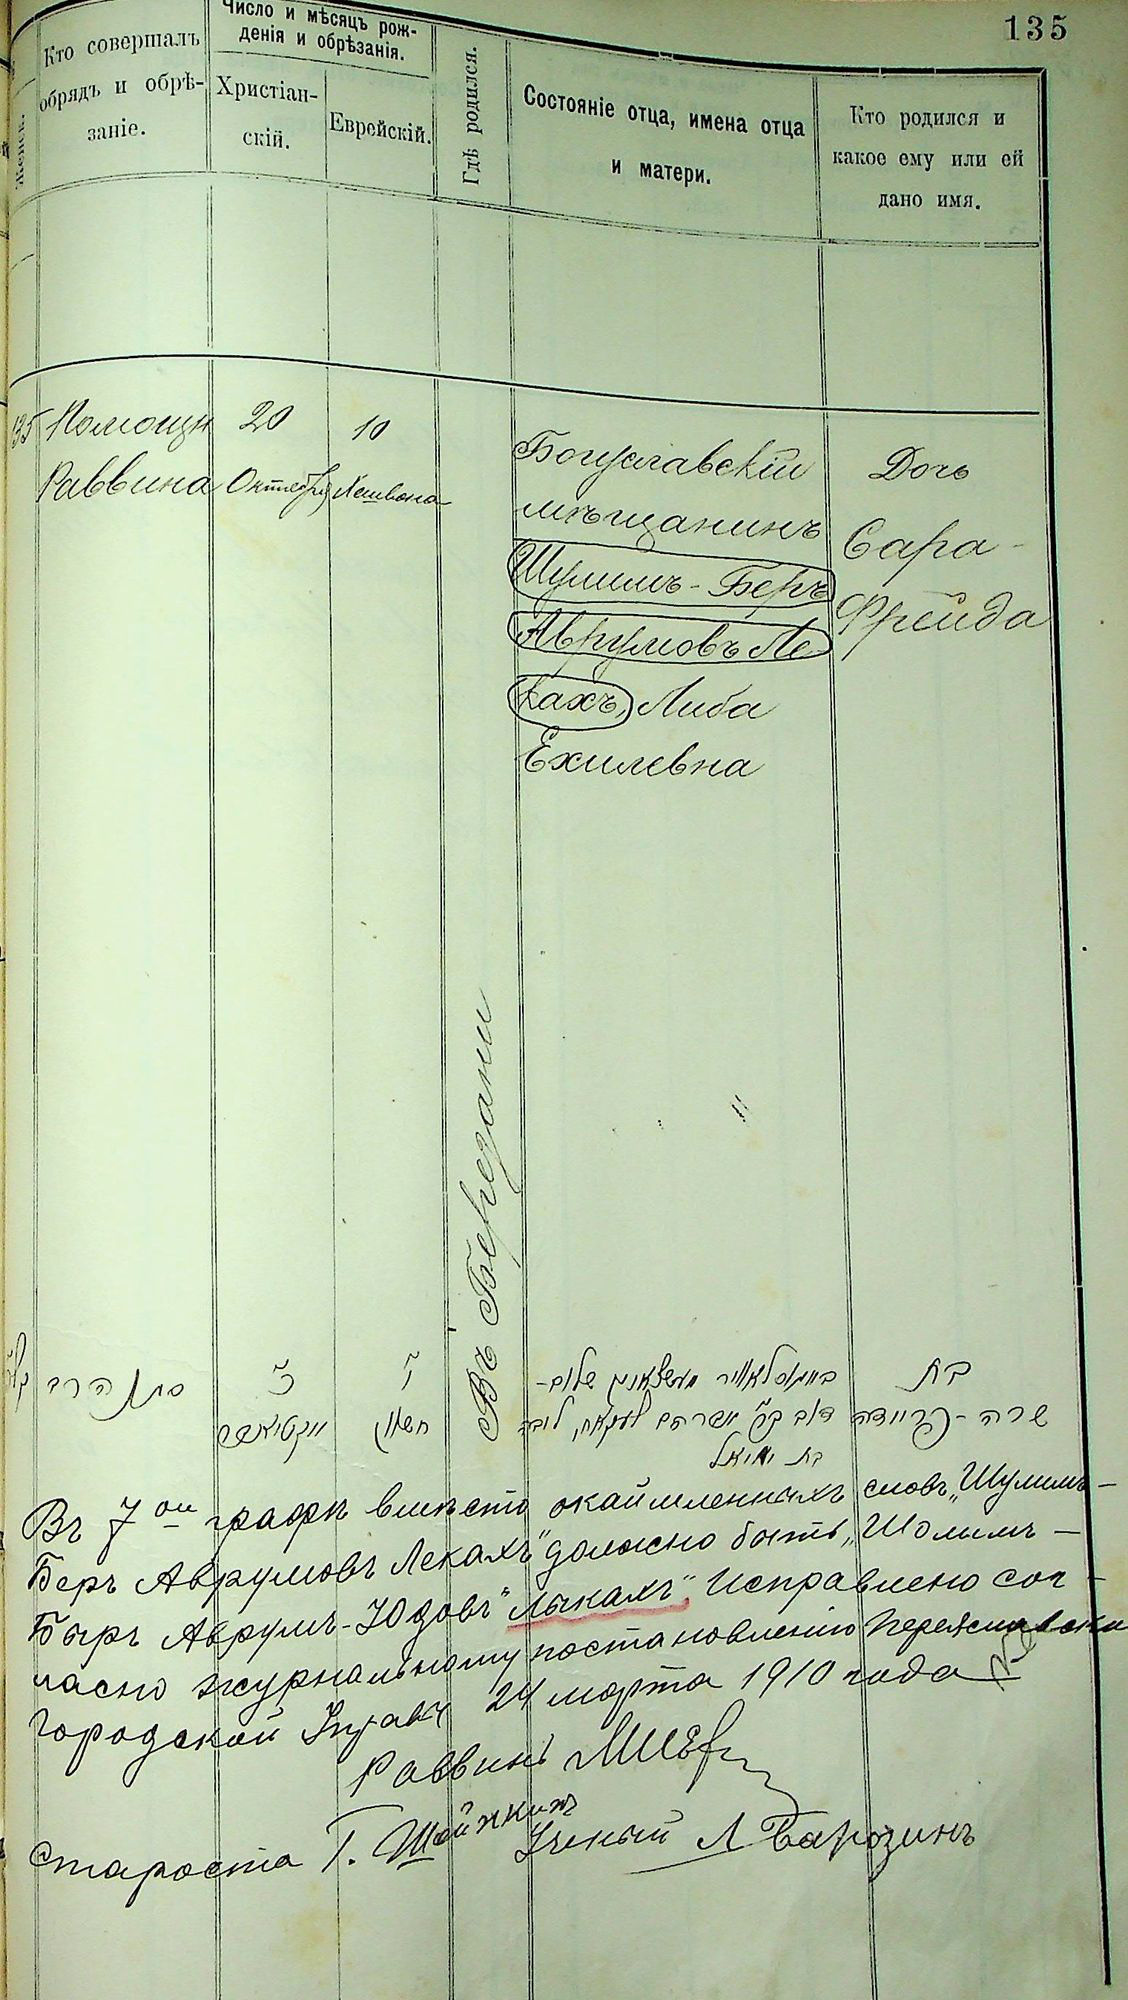 135
Женск.
Кто совершалъ
обрядъ и обрѣ-
заніе.
Число и мѣсяцъ рож-
денія и обрѣзанія.
Христіан-
скій.
Еврейскій.
Гдѣ родился.
Состояніе отца, имена отца
и матери.
Кто родился и
какое ему или ей
дано имя.
135
Помощн
Раввина
20
Октября
10
Хешвона
Въ Березани
Богуславскій
мѣщанинъ
Шулимъ-Беръ
Аврумовъ Ле
кахъ, Либа
Ехилевна
Дочь
Сара-
Фрейда
סגן הרב
כ׳
י׳
חשון
שלום-
דוב בר׳ אברהם לעקאח, ליבה
בת יחיאל
בת
שרה-פריידה
Въ 7ой графѣ вмѣсто окаймленныхъ словъ „Шулимъ-
Беръ Аврумовъ Лекахъ" должно быть „Шолимъ-
Быръ Аврумъ-Юдовъ" Лыкахъ" Исправлено сог-
ласно журнальному постановленію Переяславской
городской Управы 24 марта 1910 года
Раввинъ
Староста Г.
Ученый Л